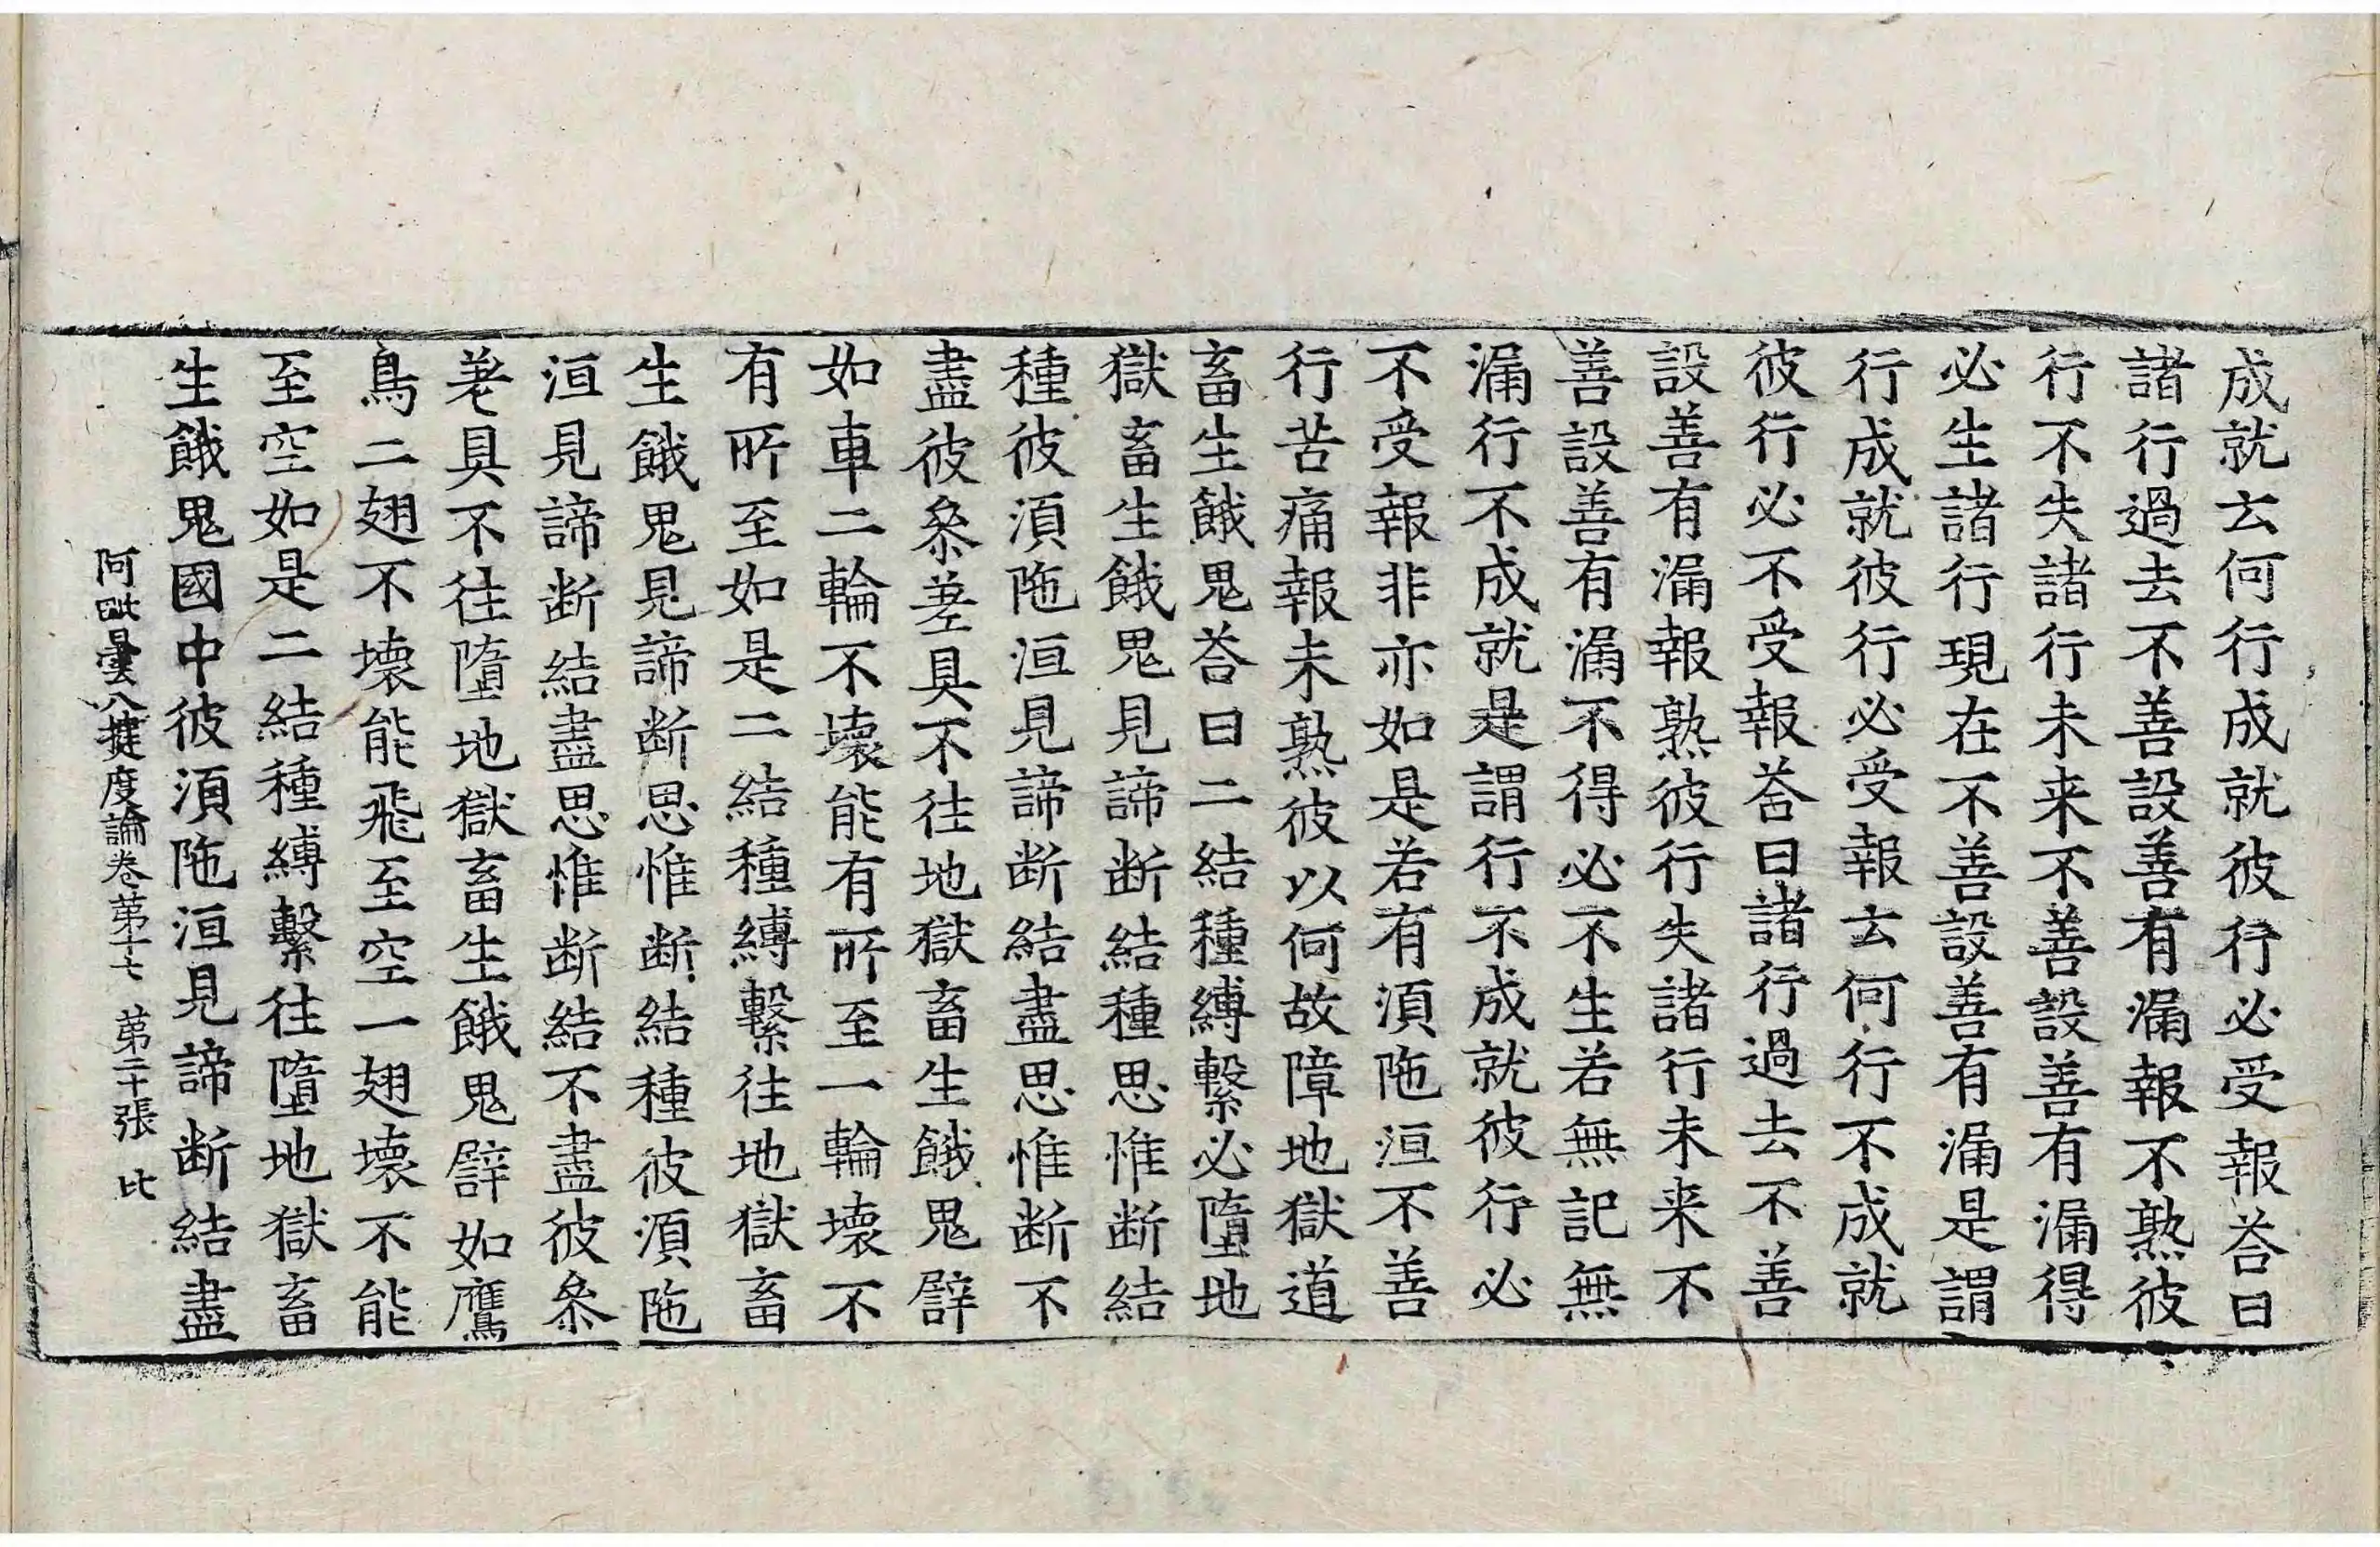 成就云何行成就彼行必受報荅曰
諸行過去不善設善有漏報不熟彼
行不失諸行未来不善設善有漏得
必生諸行現在不善設善有漏是謂
行成就彼行必受報云何行不成就
彼行必不受報荅曰諸行過去不善
設善有漏報熟彼行失諸行未来不
善設善有漏不得必不生若無記無
漏行不成就是謂行不成就彼行必
不受報非亦如是若有湏陁洹不善
行苦痛報未熟彼以何故障地獄道
畜生餓鬼荅曰二結種縛繫必墮地
獄畜生餓鬼見諦断結種思惟断結
種彼湏陁洹見諦断結盡思惟断不
盡彼叅差具不往地獄畜生餓鬼譬
如車二輪不壊能有所至一輪壊不
有所至如是二結種縛繫往地獄畜
生餓鬼見諦断思惟断結種彼湏陁
洹見諦断結盡思惟断結不盡彼叅
差具不往墮地獄畜生餓鬼譬如鷹
鳥二翅不壊能飛至空一翅壊不能
至空如是二結種縛繫往墮地獄畜
生餓鬼國中彼湏陁洹見諦断結盡
阿毗曇八揵度論卷第十七　第二十張　比